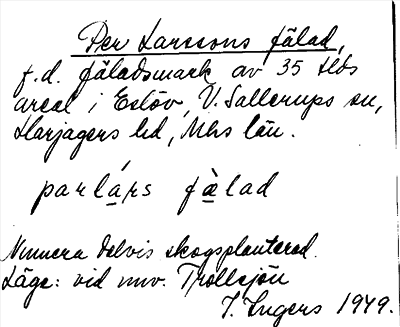 Per Larssons fälad,
f.d. fäladsmark av 35 tlds
areal i Eslöv, V. Sallerups sn,
Harjagers hd, Mhs län.
parlá̱rs fä̱lad
Numera delvis skogsplanterad.
Läge: vid nuv. Trollsjön
J. Ingers 1949.